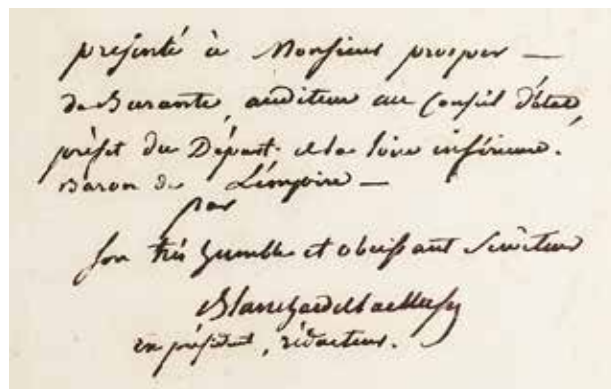 présenté à Monsieur prosper —
de Barante, auditeur au Conseil d'état,
préfet du Départ. de la loire inférieure.
Baron de L'émpire —
par
son très humble et obeissant Serviteur
Blanchard de la Musse
ex président, rédacteur.